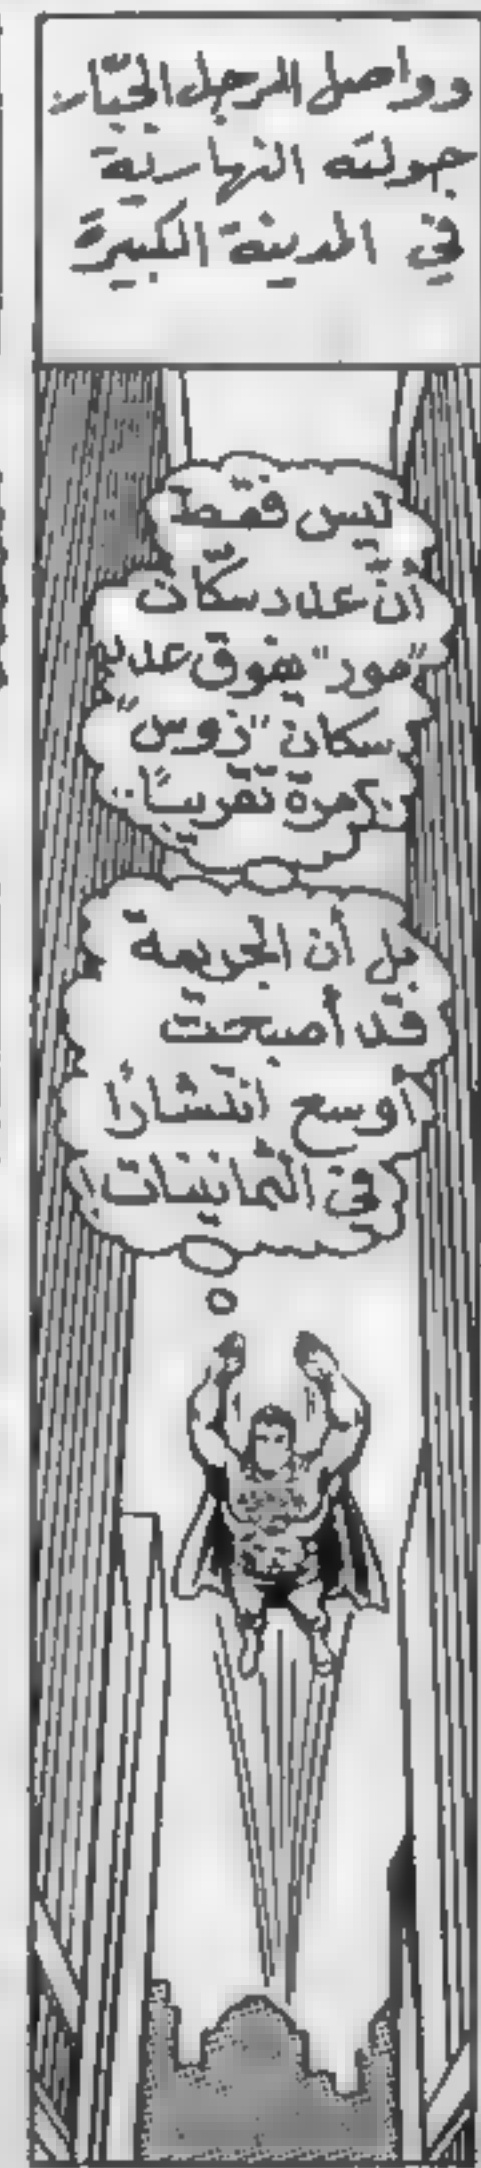 وواصل الرجل الجبّار
جولته النهارية
في المدينة الكبيرة
ليس فقط
أنّ عدد سكّان
"مور" يفوق عدد
سكان "زوس"
مرة تقريبًا..
بل أن الجريمة
قد أصبحت
أوسع انتشارًا
في الثمانينات!